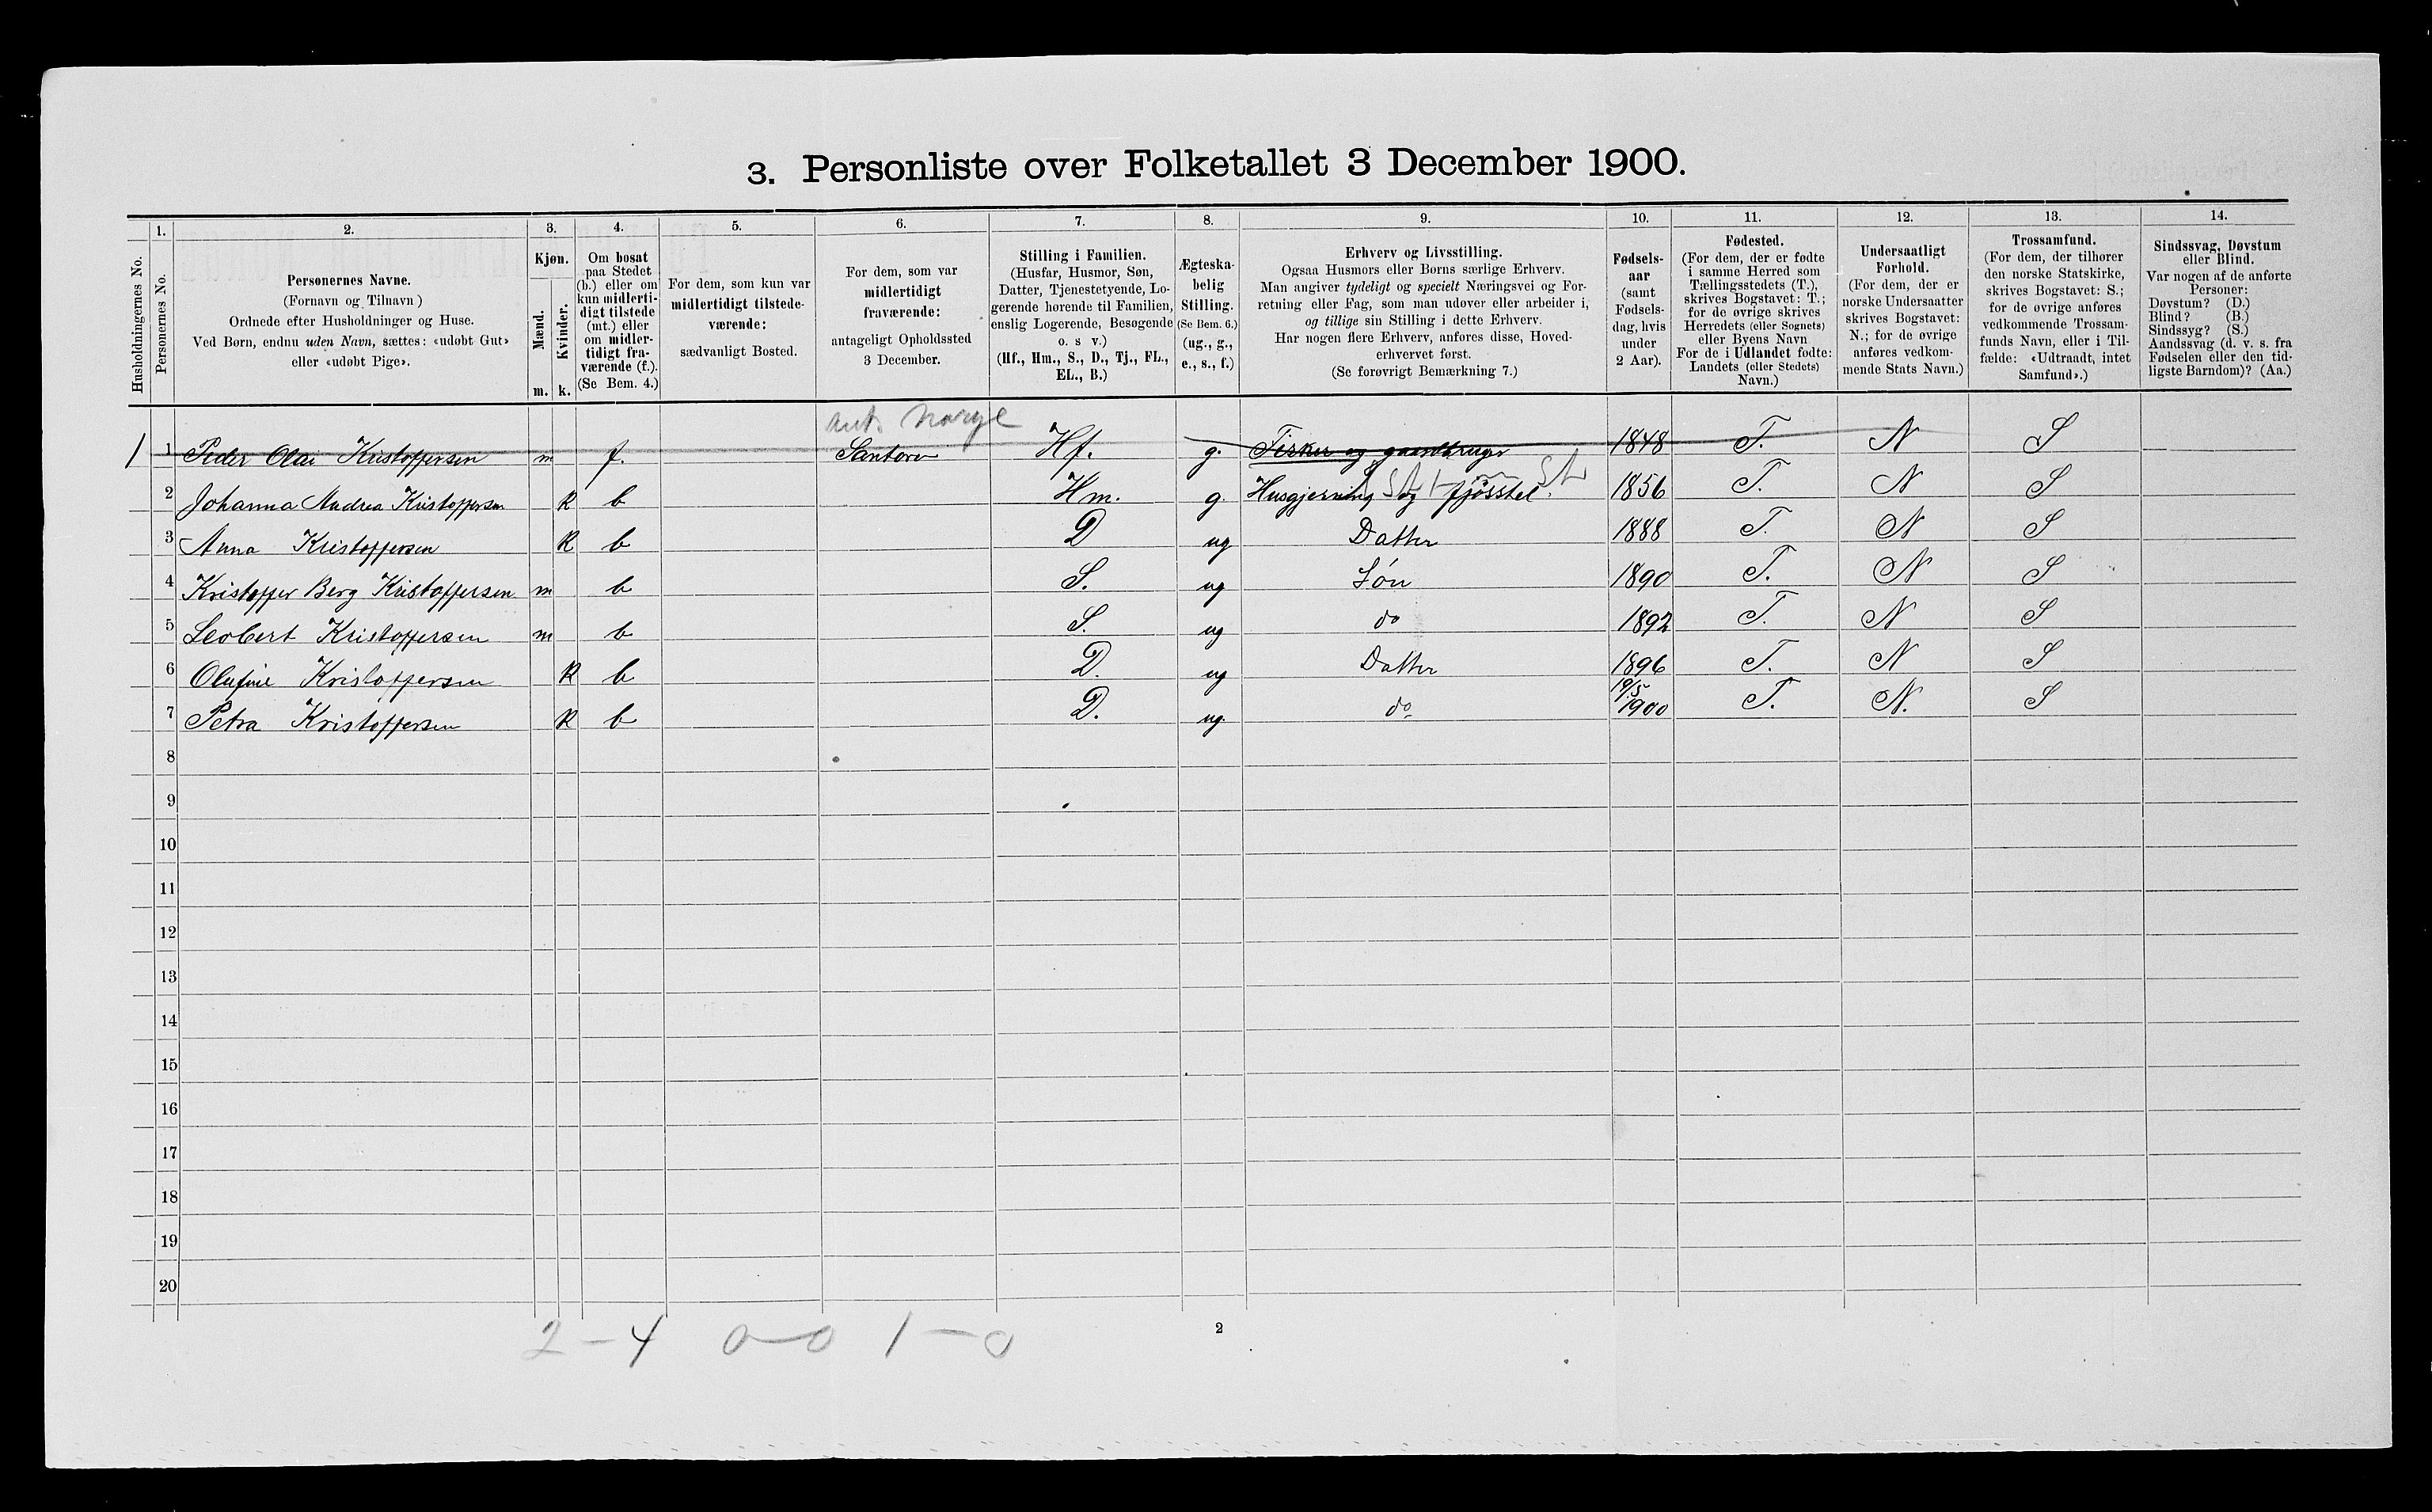 3. Personliste over Folketallet 3 December 1900.
1. 2. 3. 4. 5. 6. 7. 8. 9. 10. 11. 12. 13. 14.
Husholdningernes No.
Personernes No.
Personernes Navne.
(Fornavn og Tilnavn)
Ordnede efter Husholdninger og Huse.
Ved Børn, endnu uden Navn, sættes: «udøbt Gut»
eller «udøbt Pige».
Kjøn.
Mænd.
Kvinder.
m. k.
Om bosat
paa Stedet
(b.) eller om
kun midlerti-
digt tilstede
(mt.) eller
om midler-
tidigt fra-
værende (f.).
(Se Bem. 4.)
For dem, som kun var
midlertidigt tilstede-
værende:
sædvanligt Bosted.
For dem, som var
midlertidigt
fraværende:
antageligt Opholdssted
3 December.
Stilling i Familien.
(Husfar, Husmor, Søn,
Datter, Tjenestetyende, Lo-
gerende hørende til Familien,
enslig Logerende, Besøgende
o. s v.)
(Hf., Hm., S., D., Tj., FL.,
EL., B.)
Ægteska-
belig
Stilling.
(Se Bem. 6.)
(ug., g.,
e., s., f.)
Erhverv og Livsstilling.
Ogsaa Husmors eller Børns særlige Erhverv.
Man angiver tydeligt og specielt Næringsvei og For-
retning eller Fag, som man udøver eller arbeider i,
og tillige sin Stilling i dette Erhverv.
Har nogen flere Erhverv, anføres disse, Hoved-
erhvervet først.
(Se forøvrigt Bemærkning 7.)
Fødsels-
aar
(samt
Fødsels-
dag, hvis
under
2 Aar).
Fødested.
(For dem, der er fødte
i samme Herred som
Tællingsstedets (T.),
skrives Bogstavet: T.;
for de øvrige skrives
Herredets (eller Sognets)
eller Byens Navn
For de i Udlandet fødte:
Landets (eller Stedets)
Navn.)
Undersaatligt
Forhold.
(For dem, der er
norske Undersaatter
skrives Bogstavet:
N.; for de øvrige
anføres vedkom-
mende Stats Navn.)
Trossamfund.
(For dem, der tilhører
den norske Statskirke,
skrives Bogstavet: S.;
for de øvrige anføres
vedkommende Trossam-
funds Navn, eller i Til-
fælde: «Udtraadt, intet
Samfund».)
Sindssvag, Døvstum
eller Blind.
Var nogen af de anførte
Personer:
Døvstum? (D.)
Blind? (B.)
Sindssyg? (S.)
Aandssvag (d. v. s. fra
Fødselen eller den tid-
ligste Barndom)? (Aa.)
ant. Norge
1 1 Peder Olai Kristoffersen m f. Hf. g. Fisker og gaardbruger 1848 T. N S
2 Johanna Andrea Kristoffersen k b Hm. g. Husgjerning og fjøsstel. 1856 T. N S
3 Anna Kristoffersen k b D ug Datter 1888 T. N S
4 Kristoffer Berg Kristoffersen m b S. ug Søn 1890 T. N S
5 Leobert Kristoffersen m b S. ug do 1892 T. N S
6 Olufine Kristoffersen k b D. ug Datter 1896 T. N S
7 Petra Kristoffersen k b D. ug. do 19/5 1900 T. N. S
8
9
10
11
12
13
14
15
16
17
18
19
20
2 - 4 0 - 0 1 - 0
2